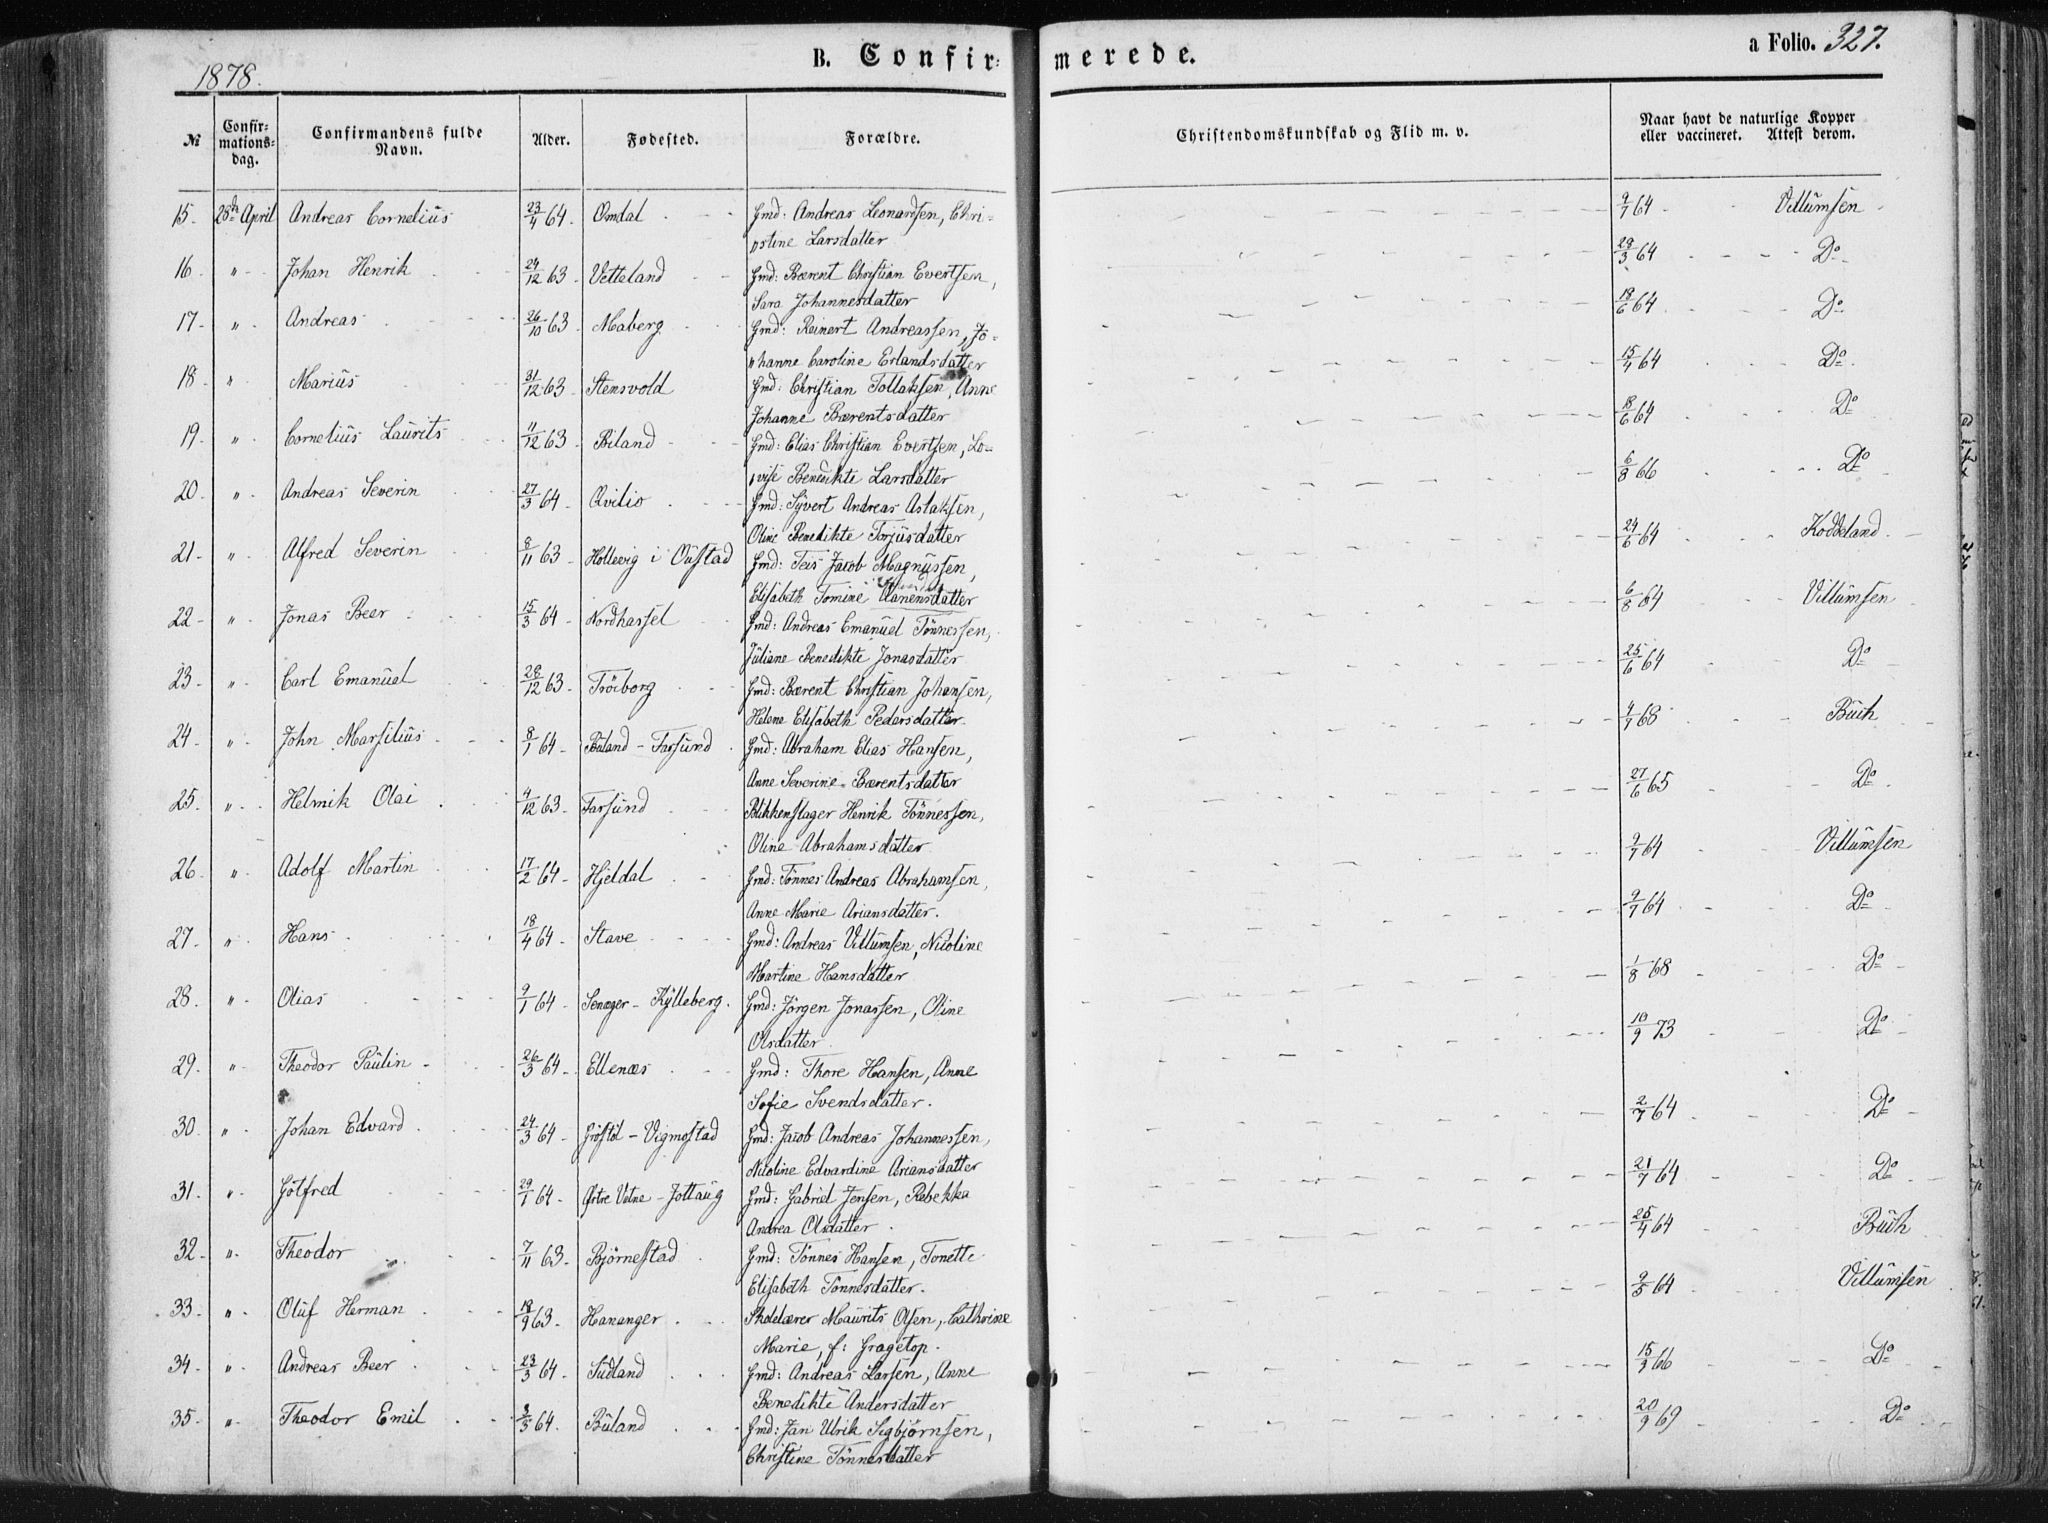 1878.
B. Confir-
merede.
a Folio. 327.
№
Confir-
mations-
dag.
Confirmandens fulde
Navn.
Alder.
Fødested.
Forældre.
Christendomskundskab og Flid m. v.
Naar havt de naturlige Kopper
eller vaccineret. Attest derom.
15. 28de April Andreas Cornelius 23/4 64. Omdal Gmd: Andreas Leonardsen, Chri- 9/7 64 Villumsen
"stine Larsdatter
16 " Johan Henrik 24/12 63. Vetteland Gmd: Bærent Christian Evertsen, 29/3 64 Do
Sara Johannesdatter
17 " Andreas 26/10 63 Maberg Gmd: Reinert Andreassen, Jo- 18/6 64 Do
"hanne Caroline Erlandsdatter
18 " Marius 31/12 63 Stensvold Gmd: Christian Tollaksen, Anne 15/4 64 Do
Johanne Bærentsdatter
19 " Cornelius Laurits 11/12 63 Biland Gmd: Elias Christian Evertsen, Lo- 18/6 64 Do
"vise Benedikte Larsdatter
20 " Andreas Severin 27/3 64 Qvilio Gmd: Sivert Andreas Aslaksen, 6/8 66 Do
Oline Benedikte Torjusdatter
21 " Alfred Severin 8/11 63 Hollevig i Oustad Gmd: Teis Jacob Magnussen, 24/6 64 Koddeland
Elisabeth Tomine Danensdatter
22 " Jonas Beer 15/3 64 Nordhassel Gmd: Andreas Emanuel Tönnessen, 6/8 64 Villumsen
Juliane Benedikte Jonasdatter
23 " Carl Emanuel 28/12 63 Tröiborg Gmd: Bærent Christian Johansen, 25/6 64 Do
Helene Elisabeth Pedersdatter
24 " John Marsilius 8/1 64 Buland - Farsund Gmd: Abraham Elias Hansen, 4/7 68 Buch
Anne Severine Bærentsdatter
25. " Helmik Olai 4/12 63 Farsund Blikkenslager Henrik Tönnessen, 27/6 65 Do
Oline Abrahamsdatter
26 " Adolf Martin 17/2 64 Hjeldal Gmd: Tönnes Andreas Abrahamsen, 9/7 64 Villumsen
Anne Marie Ariansdatter.
27 " Hans 18/4 64 Stave Gmd: Andreas Villumsen, Nicoline 9/7 64 Do
Martine Hansdatter
28. " Olias 9/1 64 Senæger - Kylleberg. Gmd: Jörgen Jonassen, Oline 1/8 68 Do
Olsdatter.
29. " Theodor Paulin 26/3 64 Ellenæs Gmd: Thore Hansen, Anne 10/9 73 Do
Sofie Svendsdatter.
30. " Johan Edvard 24/3 64 Gröstöl - Vigmostad Gmd: Jacob Andreas Johannessen, 2/7 64 Do
Nicoline Edvardine Ariansdatter
31. " Gotfred 29/1 64. Østre Vatne - Jottaug Gmd: Gabriel Jensen, Rebekka 21/7 64 Do
Andrea Olsdatter
32 " Theodor 7/11 63. Bjørnestad Gmd: Tönnes Hansen, Tonette 25/4 64 Buch
Elisabeth Tönnesdatter.
33 " Oluf Herman 18/9 63 Hananger Skolelærer Maurits Olsen, Cathrine 9/5 64 Villumsen
Marie, f: Gragetop.
34 " Andreas Beer 23/3 64 Sudland Gmd: Andreas Larsen, Anne 15/3 66 Do
Benedikte Andersdatter
35 " Theodor Emil 3/3 64. Buland Gmd: Jan Ulrik Sigbjørnsen, 20/9 69 Do
Christine Tönnesdatter